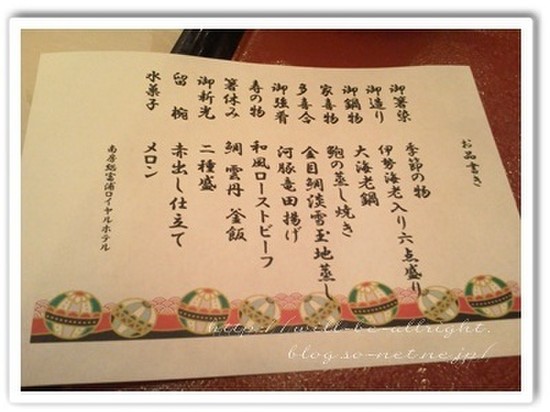 お品書き
御箸染 季節の物
御造り 伊勢海老入り六点盛り
御鍋物 大海老鍋
家喜物 鮑の蒸し焼き
多喜合 金目鯛淡雪玉地蒸し
御強肴 河豚竜田揚げ
寿の物 和風ローストビーフ
箸休み 鯛 雲丹 釜飯
御新光 二種盛
留 椀 赤出し仕立て
水菓子 メロン
南房総富浦ロイヤルホテル
http://will-be-allright.
blog.so-net.ne.jp/